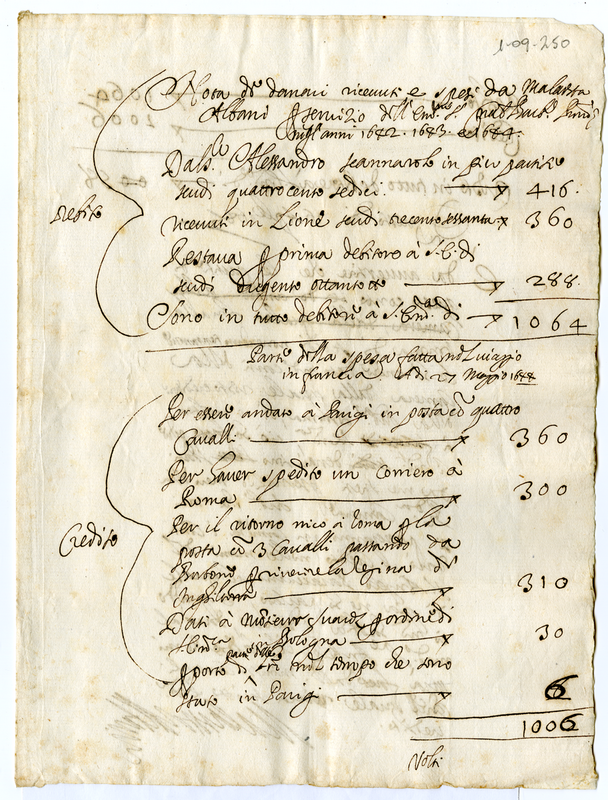 1-09-250
Nota de danari ricevuti e spesi da Malatesta
Albani p servizio dell' Em.mo S.
nell' anni 1642. 1643. e 1644.
Dal S.r Alessandro in più partite
scudi quattrocento sedici. 416.
ricevuti in Lione scudi trecento sessanta 360
Restava p prima debitore à S.E. di
scudi dugento ottantotto 288.
Debito
Sono in tutto debitore a S. Em.a di 1064
Parte della spesa fatta nel viaggio
in francia. Adi 27 Maggio 1644
Per essere andato à Parigi in posta cō quattro
Cavalli 360
Per haver spedito un Corriero à
Roma 300
Per il ritorno mio à Roma p la
posta cō 3 Cavalli passando da
p rivenire la Regina d'
Inghilterra 310
Credito
Dati à p ordine di
S. Em.za Bologna 30
p porto di nel tempo che sono
stato in Parigi 6
1006
Volti